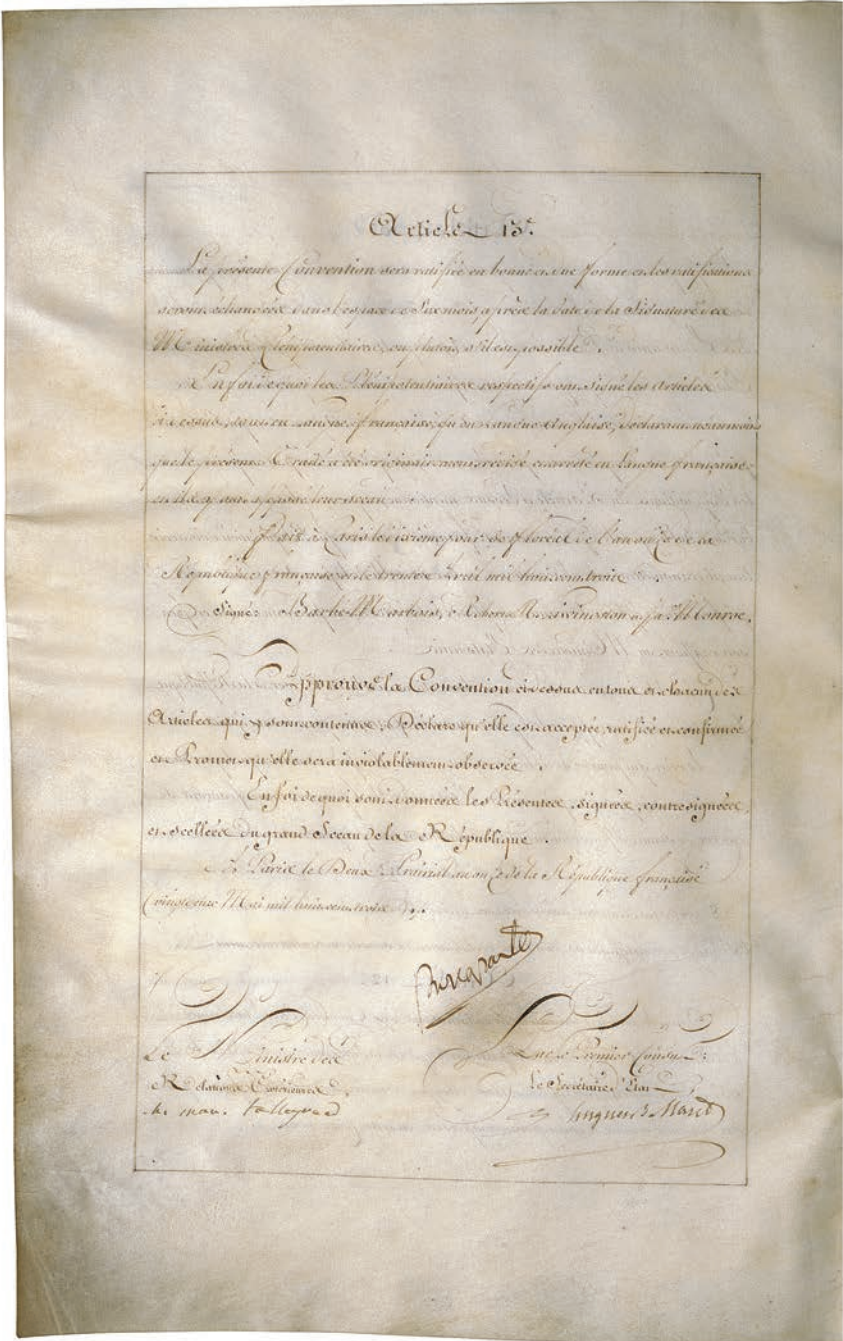 Article 13e.
La présente Convention sera ratifiée en bonne et due forme et les ratifications
seront échangées dans l'espace de Six mois, après la date de la Signature des
Ministres Plénipotentiaires, ou plutôt, s'il est possible.
En foi de quoi les Plénipotentiaires respectifs ont Signé les Articles
ci dessus, tant en Langue française, qu'en Langue Anglaise, déclarant néanmoins
que le présent Traité a été originairement rédigé et arrêté en Langue française
et ils y ont apposé leur sceau
fait à Paris le dixième jour de floréal de l'an onze de la
République française et le trente Avril mil huit cent trois.
Signé: Barbé-Marbois, Robert R. Livingston et Jas Monroe.
Approuve la Convention ci dessus en tous et chacun des
Articles qui y sont contenus; Déclare qu'elle est acceptée, ratifiée et confirmée
et Promet qu'elle sera inviolablement observée.
En foi de quoi sont données les Présentes, signées, contresignées
et scellées du grand Sceau de la République.
à Paris le Deux Prairial an onze de la République française
(vingt deux Mai mil huit cent trois)
Bonaparte
Le Ministre des
Relations Extérieures,
ch. mau. talleyrand
Par le Premier Consul:
le Secrétaire d'Etat,
hugues B. Maret